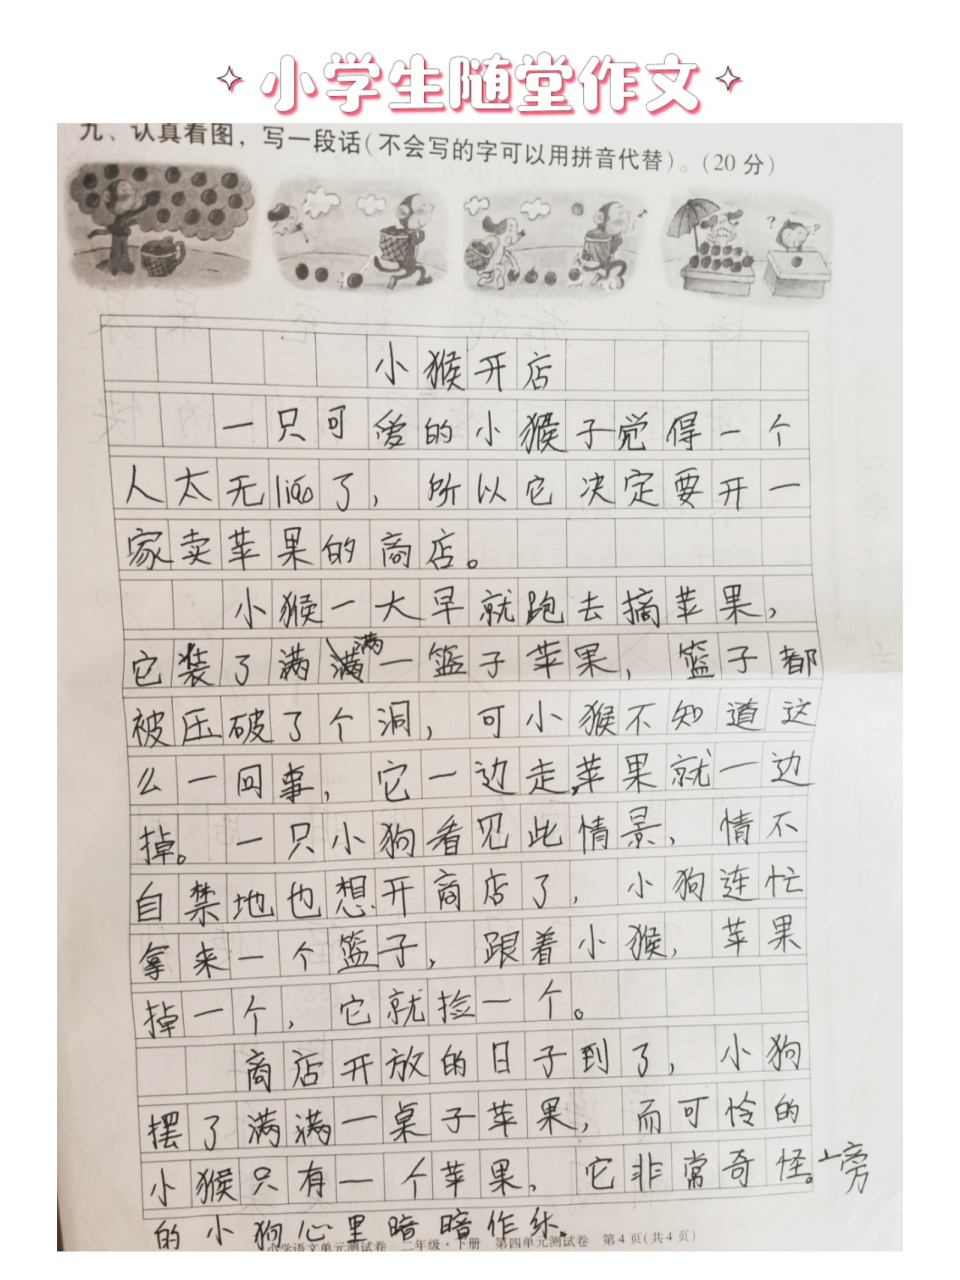 小学生随堂作文
九、认真看图，写一段话(不会写的字可以用拼音代替)。(20分)
? ?
小猴开店
一只可爱的小猴子觉得一个
人太无liáo了，所以它决定要开一
家卖苹果的商店。
小猴一大早就跑去摘苹果，
它装了满满一篮子苹果，篮子都
被压破了个洞，可小猴不知道这
么一回事，它一边走，苹果就一边
掉。一只小狗看见此情景，情不
自禁地也想开商店了，小狗连忙
拿来一个篮子，跟着小猴，苹果
掉一个，它就捡一个。
商店开放的日子到了，小狗
摆了满满一桌子苹果，而可怜的
小猴只有一个苹果，它非常奇怪。旁
的小狗心里暗暗作乐.
小学语文单元测试卷 二年级·下册 第四单元测试卷 第4页(共4页)